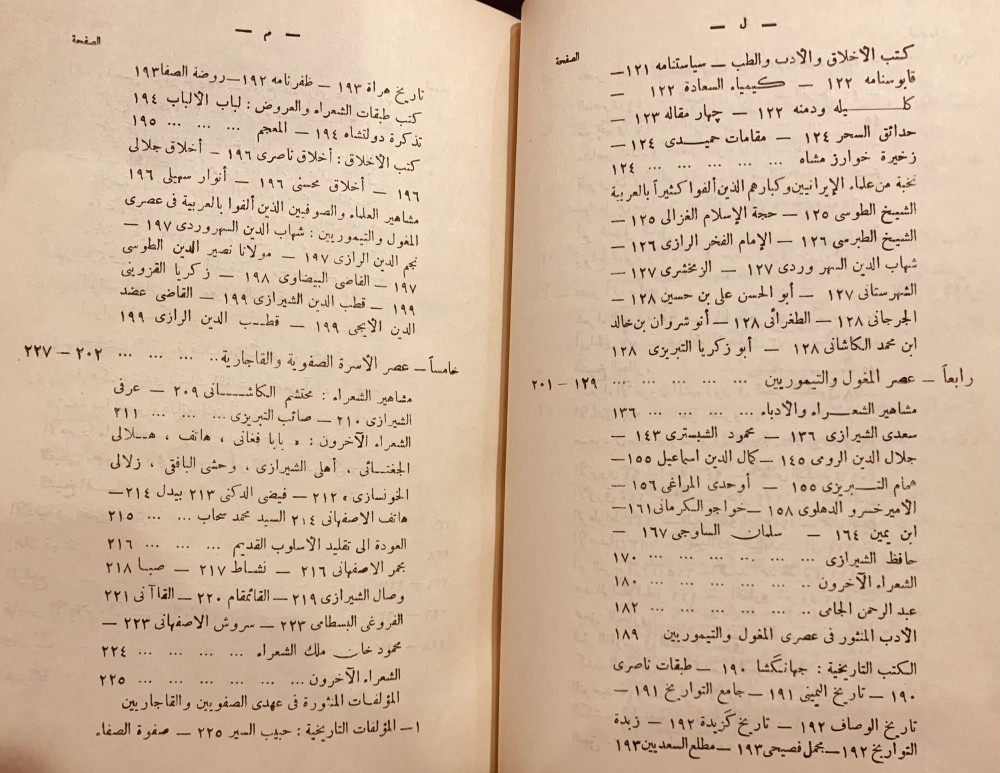 — ل —
الصفحة
كتب الأخلاق والأدب والطب — سياستنامه ١٢١ —
قابوسنامه ١٢٢ — كيمياء السعادة ١٢٢ —
كليله ودمنه ١٢٢ — چهار مقاله ١٢٣ —
حدائق السحر ١٢٤ — مقامات حميدى ١٢٤ —
زخيرة خوارز مشاه ... ... ... ... ... ١٢٤
نخبة من علماء الإيرانيين وكبارهم الذين ألفوا كثيراً بالعربية
الشيخ الطوسى ١٢٥ — حجة الإسلام الغزالى ١٢٥ —
الشيخ الطبرسى ١٢٦ — الإمام الفخر الرازى ١٢٦ —
شهاب الدين السهر وردى ١٢٧ — الزمخشرى ١٢٧ —
الشهرستانى ١٢٧ — أبو الحسن على بن حسين ١٢٨ —
الجرجانى ١٢٨ — الطغرائى ١٢٨ — أنو شروان بن خالد
ابن محمد الكاشانى ١٢٨ — أبو زكريا التبريزى ١٢٨
رابعاً — عصر المغول والتيموريين ... ... ... ... ١٢٩ — ٢٠١
مشاهير الشعراء والأدباء ... ... ... ... ١٣٦
سعدى الشيرازى ١٣٦ — محمود الشبسترى ١٤٣ —
جلال الدين الرومى ١٤٥ — كمال الدين اسماعيل ١٥٥ —
همام التبريزى ١٥٥ — أوحدى المراغى ١٥٦ —
الأمير خسرو الدهلوى ١٥٨ — خواجو الكرمانى ١٦١ —
ابن يمين ١٦٤ — سلمان الساوجى ١٦٧ —
حافظ الشيرازى ... ... ... ... ... ... ١٧٠
الشعراء الآخرون ... ... ... ... ... ... ١٨٠
عبد الرحمن الجامى ... ... ... ... ... ١٨٢
الأدب المنثور فى عصرى المغول والتيموريين ١٨٩
الكتب التاريخية : جهانگشا ١٩٠ — طبقات ناصرى
١٩٠ — تاريخ اليمينى ١٩١ — جامع التواريخ ١٩١ —
تاريخ الوصاف ١٩٢ — تاريخ گزيدة ١٩٢ — زبدة
التواريخ ١٩٢ — مجمل فصيحى ١٩٣ — مطلع السعديين ١٩٣
— م —
الصفحة
تاريخ هراة ١٩٣ — ظفر نامه ١٩٢ — روضة الصفا ١٩٣
كتب طبقات الشعراء والعروض : لباب الألباب ١٩٤
تذكرة دولتشاه ١٩٤ — المعجم ... ... ... ١٩٥
كتب الأخلاق : أخلاق ناصرى ١٩٦ — أخلاق جلالى
١٩٦ — أخلاق محسنى ١٩٦ — أنوار سهيلى ١٩٦
مشاهير العلماء والصوفيين الذين ألفوا بالعربية فى عصرى
المغول والتيموريين : شهاب الدين السهروردى ١٩٧ —
نجم الدين الرازى ١٩٧ — مولانا نصير الدين الطوسى
١٩٧ — القاضى البيضاوى ١٩٨ — زكريا القزوينى
١٩٩ — قطب الدين الشيرازى ١٩٩ — القاضى عضد
الدين الأيجى ١٩٩ — قطب الدين الرازى ١٩٩
خامساً — عصر الأسرة الصفوية والقاجارية ... ... ... ... ٢٠٢ — ٢٢٧
مشاهير الشعراء : محتشم الكاشانى ٢٠٩ — عرفى
الشيرازى ٢١٠ — صائب التبريزى ... ... ... ٢١١
الشعراء الآخرون : « بابا فغانى ، هاتف ، هلالى
الجغتائى ، أهلى الشيرازى ، وحشى البافقى ، زلالى
الخونسازى » ٢١٢ — فيضى الدكنى ٢١٣ بيدل ٢١٤ —
هاتف الاصفهانى ٢١٤ السيد محمد سحاب ... ... ٢١٥
العودة الى تقليد الأسلوب القديم ... ... ... ٢١٦
مجمر الاصفهانى ٢١٦ — نشاط ٢١٧ — صبا ٢١٨
وصال الشيرازى ٢١٩ — القائمقام ٢٢٠ — القاآنى ٢٢١
الفروغى البسطامى ٢٢٣ — سروش الاصفهانى ٢٢٣ —
محمود خان ملك الشعراء ... ... ... ... ٢٢٤
الشعراء الآخرون ... ... ... ... ... ... ٢٢٥
المؤلفات المنثورة فى عهدى الصفويين والقاجاريين
١ — المؤلفات التاريخية : حبيب السير ٢٢٥ — صفوة الصفاء